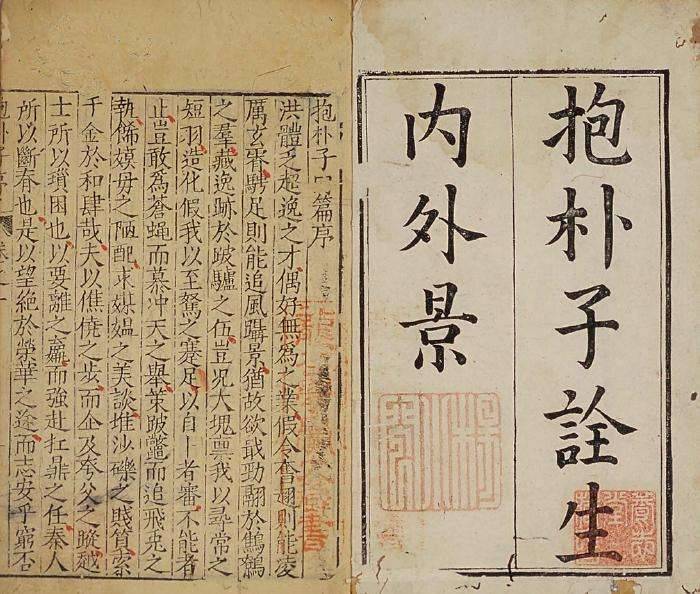 抱朴子詮生
内外景
抱朴子内篇序
洪體乏超逸之才偶好無為之業假令奮翅則能凌
厲玄霄騁足則能追風躡景猶故欲戢勁翮於鷦鷯
之羣藏逸跡於跛驢之伍豈况大塊禀我以尋常之
短羽造化假我以至駑之蹇足以自卜者審不能者
止豈敢為蒼蝇而慕冲天之舉策跛鼈而追飛兎之
軌飾嫫母之陋醜求媒媪之美談堆沙礫之賤質索
千金於和肆哉夫以僬僥之步而企及夸父之蹤越
士所以瑣困也以要離之羸而強赴扛鼎之任秦人
所以斷脊也是以望絶於榮華之途而志安乎窮否